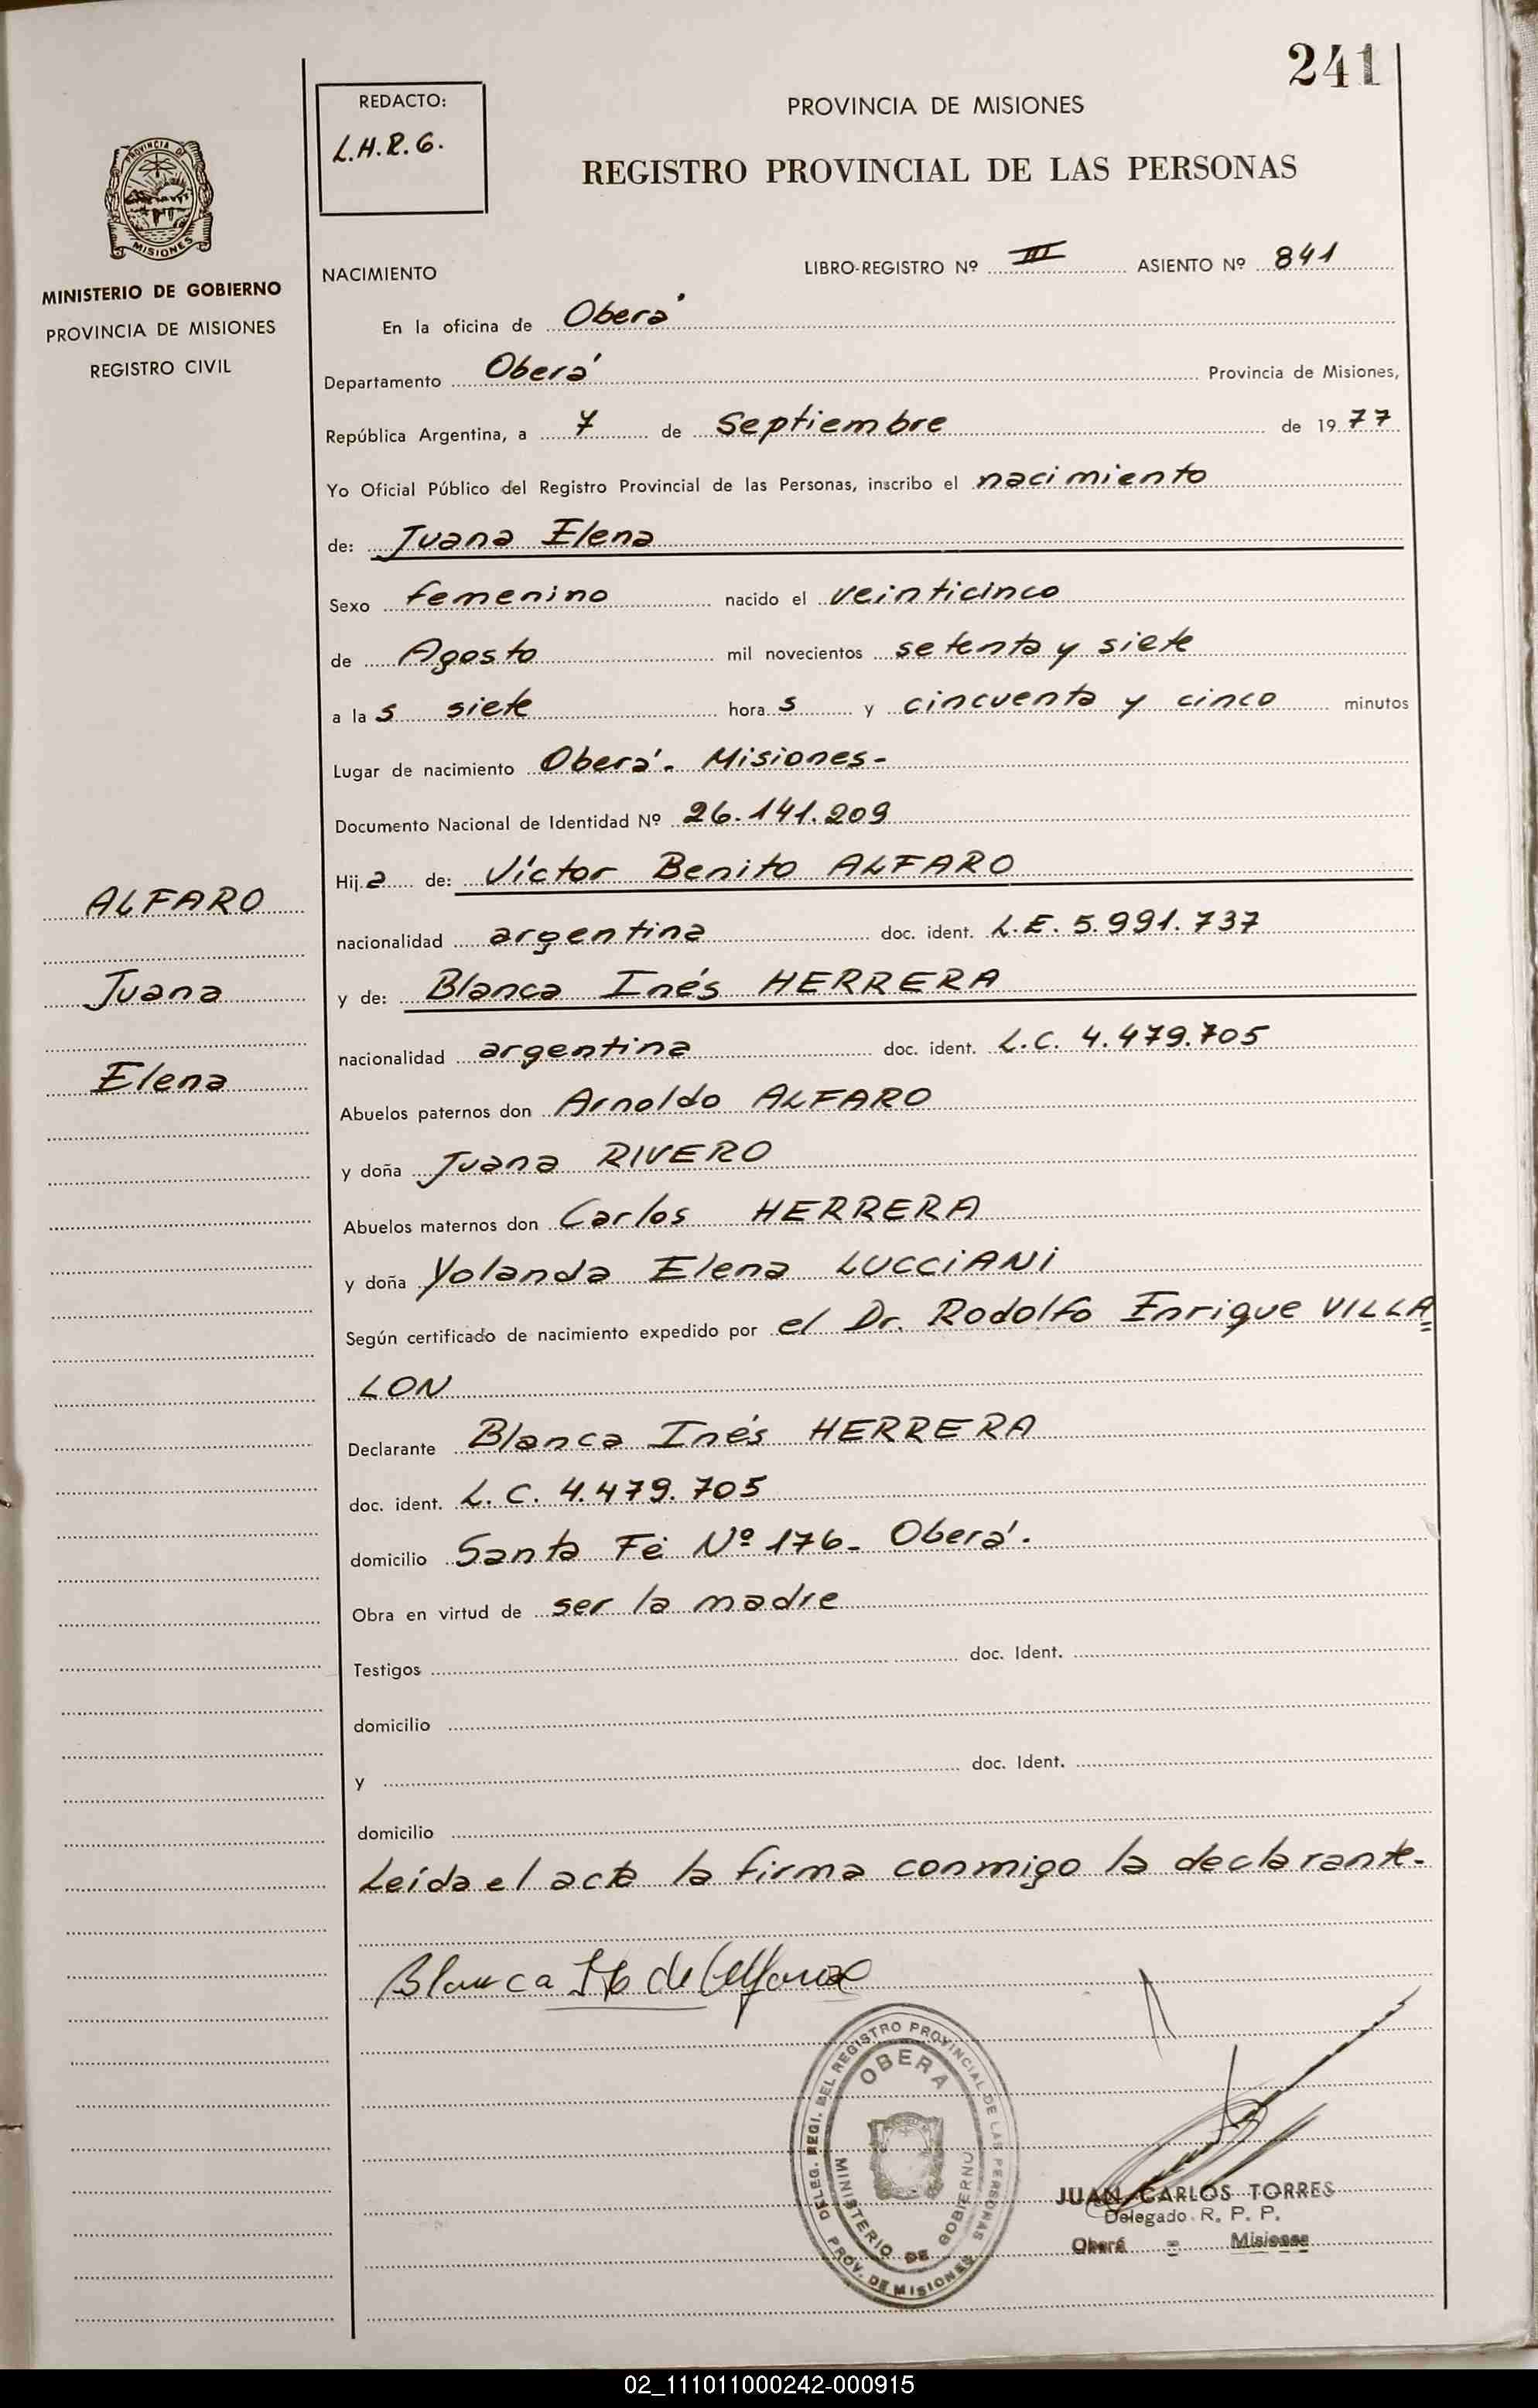 241
REDACTO:
L.H.R.G.
PROVINCIA DE MISIONES
REGISTRO PROVINCIAL DE LAS PERSONAS
PROVINCIA DE
MISIONES
MINISTERIO DE GOBIERNO
PROVINCIA DE MISIONES
REGISTRO CIVIL
NACIMIENTO LIBRO-REGISTRO Nº III ASIENTO Nº 841
En la oficina de Oberá
Departamento Oberá Provincia de Misiones,
República Argentina, a 7 de Septiembre de 1977
Yo Oficial Público del Registro Provincial de las Personas, inscribo el nacimiento
de: Juana Elena
Sexo femenino nacido el veinticinco
de Agosto mil novecientos setenta y siete
a las siete horas y cincuenta y cinco minutos
Lugar de nacimiento Oberá. Misiones-
Documento Nacional de Identidad Nº 26.141.209
Hija de: Víctor Benito ALFARO
nacionalidad argentina doc. ident. L.E. 5.991.737
y de: Blanca Inés HERRERA
nacionalidad argentina doc. ident. L.C. 4.479.705
Abuelos paternos don Arnoldo ALFARO
y doña Juana RIVERO
Abuelos maternos don Carlos HERRERA
y doña Yolanda Elena LUCCiANi
Según certificado de nacimiento expedido por el Dr. Rodolfo Enrique VILLA=
LON
Declarante Blanca Inés HERRERA
doc. ident. L.C. 4.479.705
domicilio Santa Fé Nº 176- Oberá.
Obra en virtud de ser la madre
Testigos doc. Ident.
domicilio
y doc. Ident.
domicilio
Leída el acta la firma conmigo la declarante.
ALFARO
Juana
Elena
Blanca H de Alfaro
DELEG. REGI. DEL REGISTRO PROVINCIAL DE LAS PERSONAS
OBERA
MINISTERIO DE GOBIERNO
PROV. DE MISIONES
JUAN CARLOS TORRES
Delegado R. P. P.
Oberá - Misiones
02_111011000242-000915